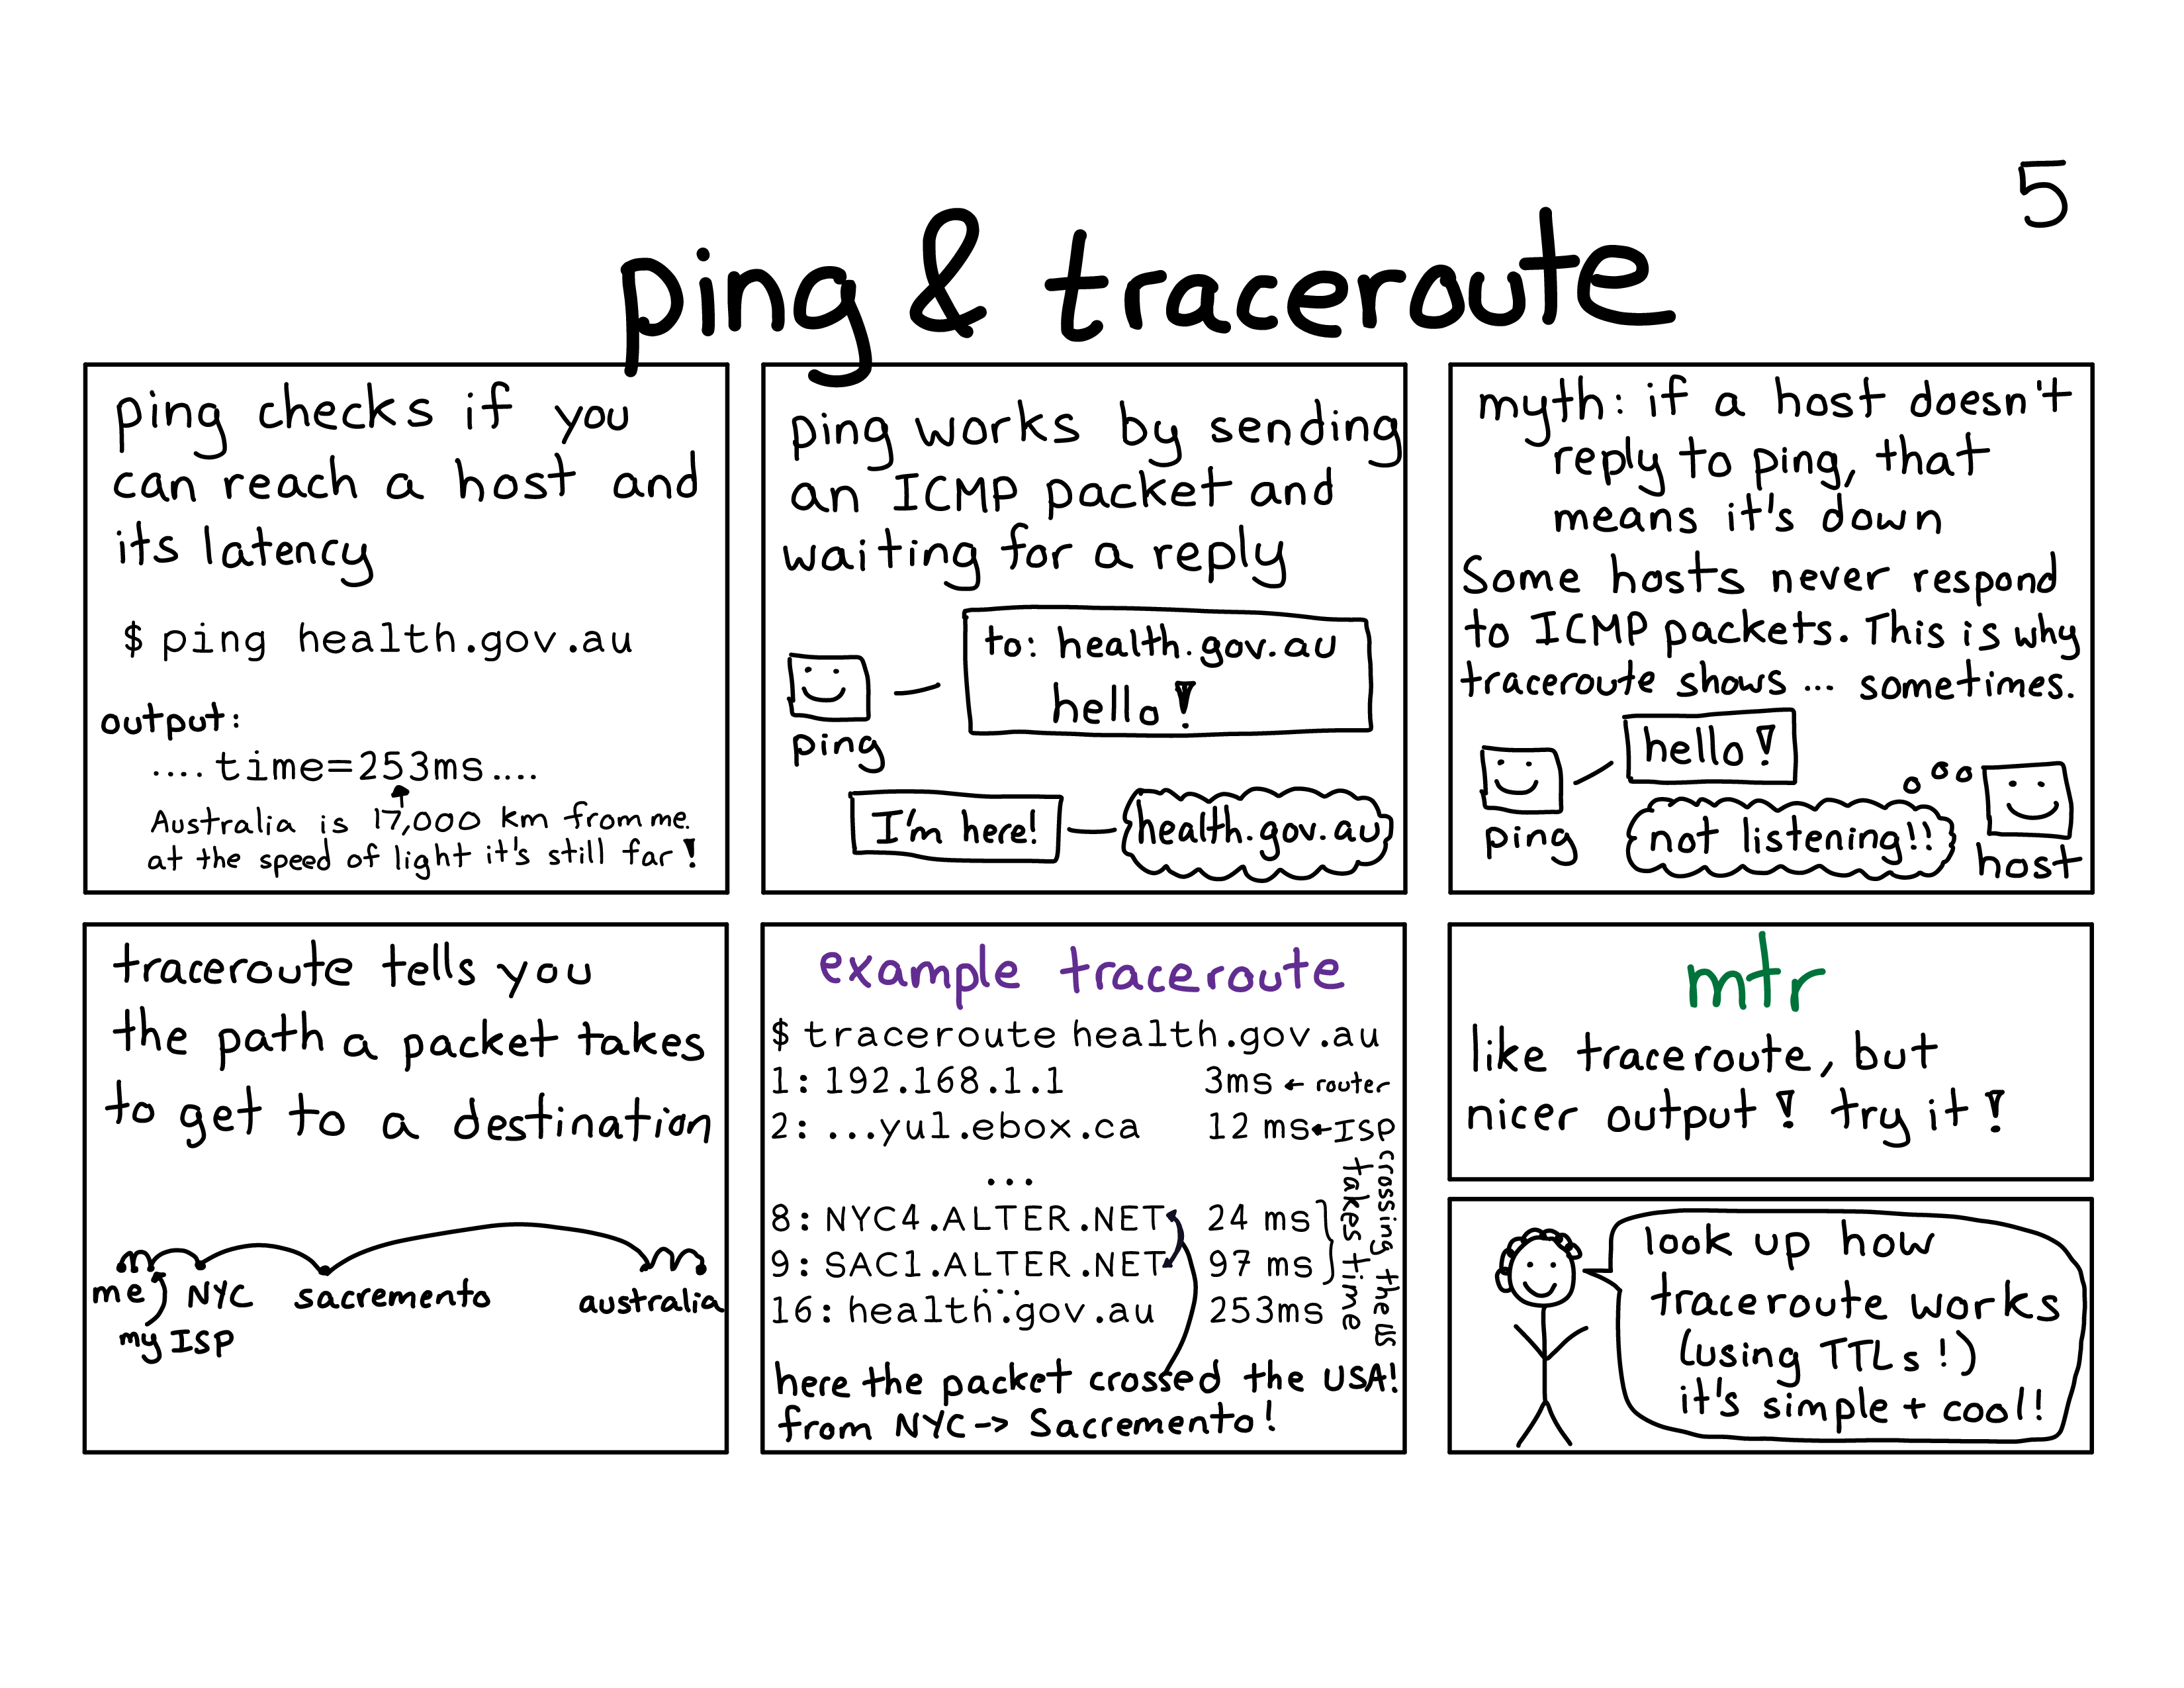 5
ping & traceroute
ping checks if you
can reach a host and
its latency
$ ping health.gov.au
output:
.... time=253ms....
Australia is 17,000 km from me.
at the speed of light it's still far!
ping works by sending
an ICMP packet and
waiting for a reply
to: health.gov.au
hello!
ping
I'm here!
health.gov.au
myth: if a host doesn't
reply to ping, that
means it's down
Some hosts never respond
to ICMP packets. This is why
traceroute shows ... sometimes.
hello!
ping
not listening!!
host
traceroute tells you
the path a packet takes
to get to a destination
me
my ISP
NYC
sacremento
australia
example traceroute
$ traceroute health.gov.au
1: 192.168.1.1 3ms ← router
2: ...yul.ebox.ca 12 ms ← ISP
...
8: NYC4.ALTER.NET 24 ms
9: SAC1.ALTER.NET 97 ms
...
16: health.gov.au 253ms
crossing the US
takes time
here the packet crossed the USA!
from NYC -> Sacremento!
mtr
like traceroute, but
nicer output! try it!
look up how
traceroute works
(using TTLs!)
it's simple + cool!